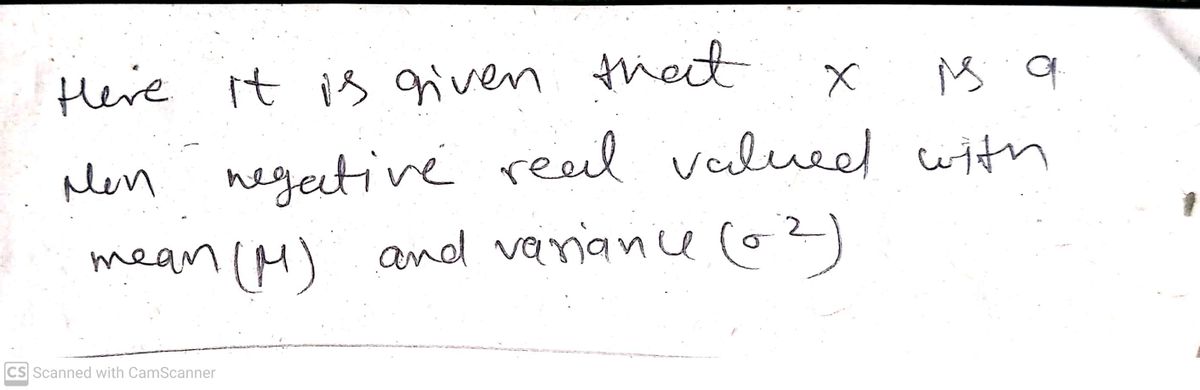 Here it is given that x is a
Non negative real valued with
mean (μ) and variance (σ²)
CS Scanned with CamScanner